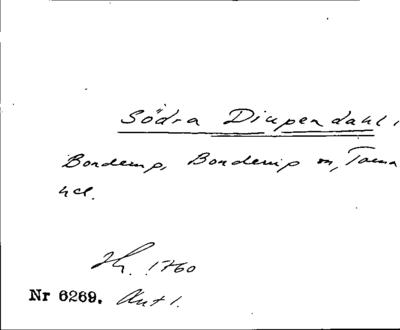 Södra Diupendahl,
Bondemp, Bondemp sn, Tama
hd.
Hr. 1760
Nr 6269. Avt 1.